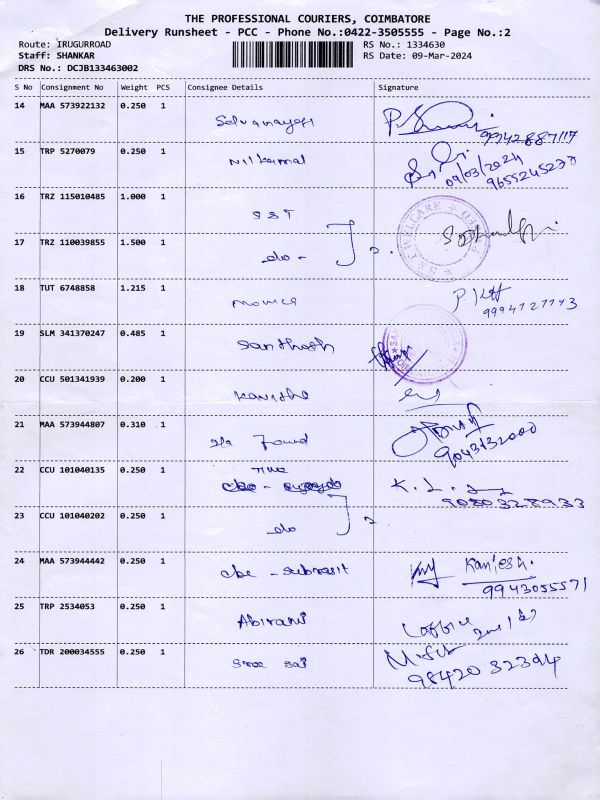 THE PROFESSIONAL COURIERS, COIMBATORE
Delivery Runsheet - PCC - Phone No.:0422-3505555 - Page No.:2
Route: IRUGURROAD
RS No.: 1334630
Staff: SHANKAR
RS Date: 09-Mar-2024
DRS No.: DCJB133463002
S No Consignment No Weight PCS Consignee Details Signature
14 MAA 573922132 0.250 1
9942887117
15 TRP 5270079 0.250 1 Nilkamal
09/03/2024
9655245238
16 TRZ 115010485 1.000 1 SST
17 TRZ 110039855 1.500 1 do - 2.
18 TUT 6748858 1.215 1 Monica
19 SLM 341370247 0.485 1 Santhosh
20 CCU 501341939 0.200 1
21 MAA 573944807 0.310 1 Found
9043132000
22 CCU 101040135 0.250 1
K. L.
9080328933
23 CCU 101040202 0.250 1 do 2
24 MAA 573944442 0.250 1 cbe -
Kanjesh.
9943055571
25 TRP 2534053 0.250 1 Abirami
26 TDR 200034555 0.250 1 Sree Sai
98420 32394